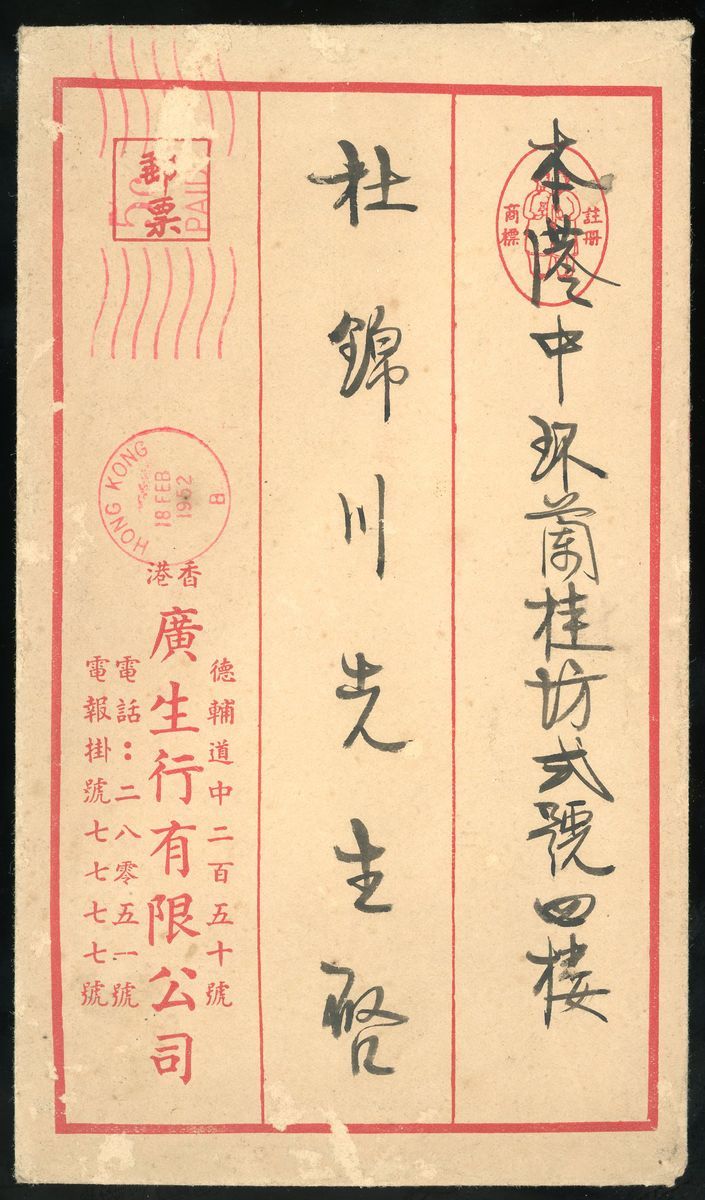 本港中環蘭桂坊弍號四樓
註冊
商標
杜錦川先生啓
郵票
PAID
HONG KONG
18 FEB
1952
B
香港
德輔道中二百五十號
廣生行有限公司
電話：二八零五一號
電報掛號七七七七號